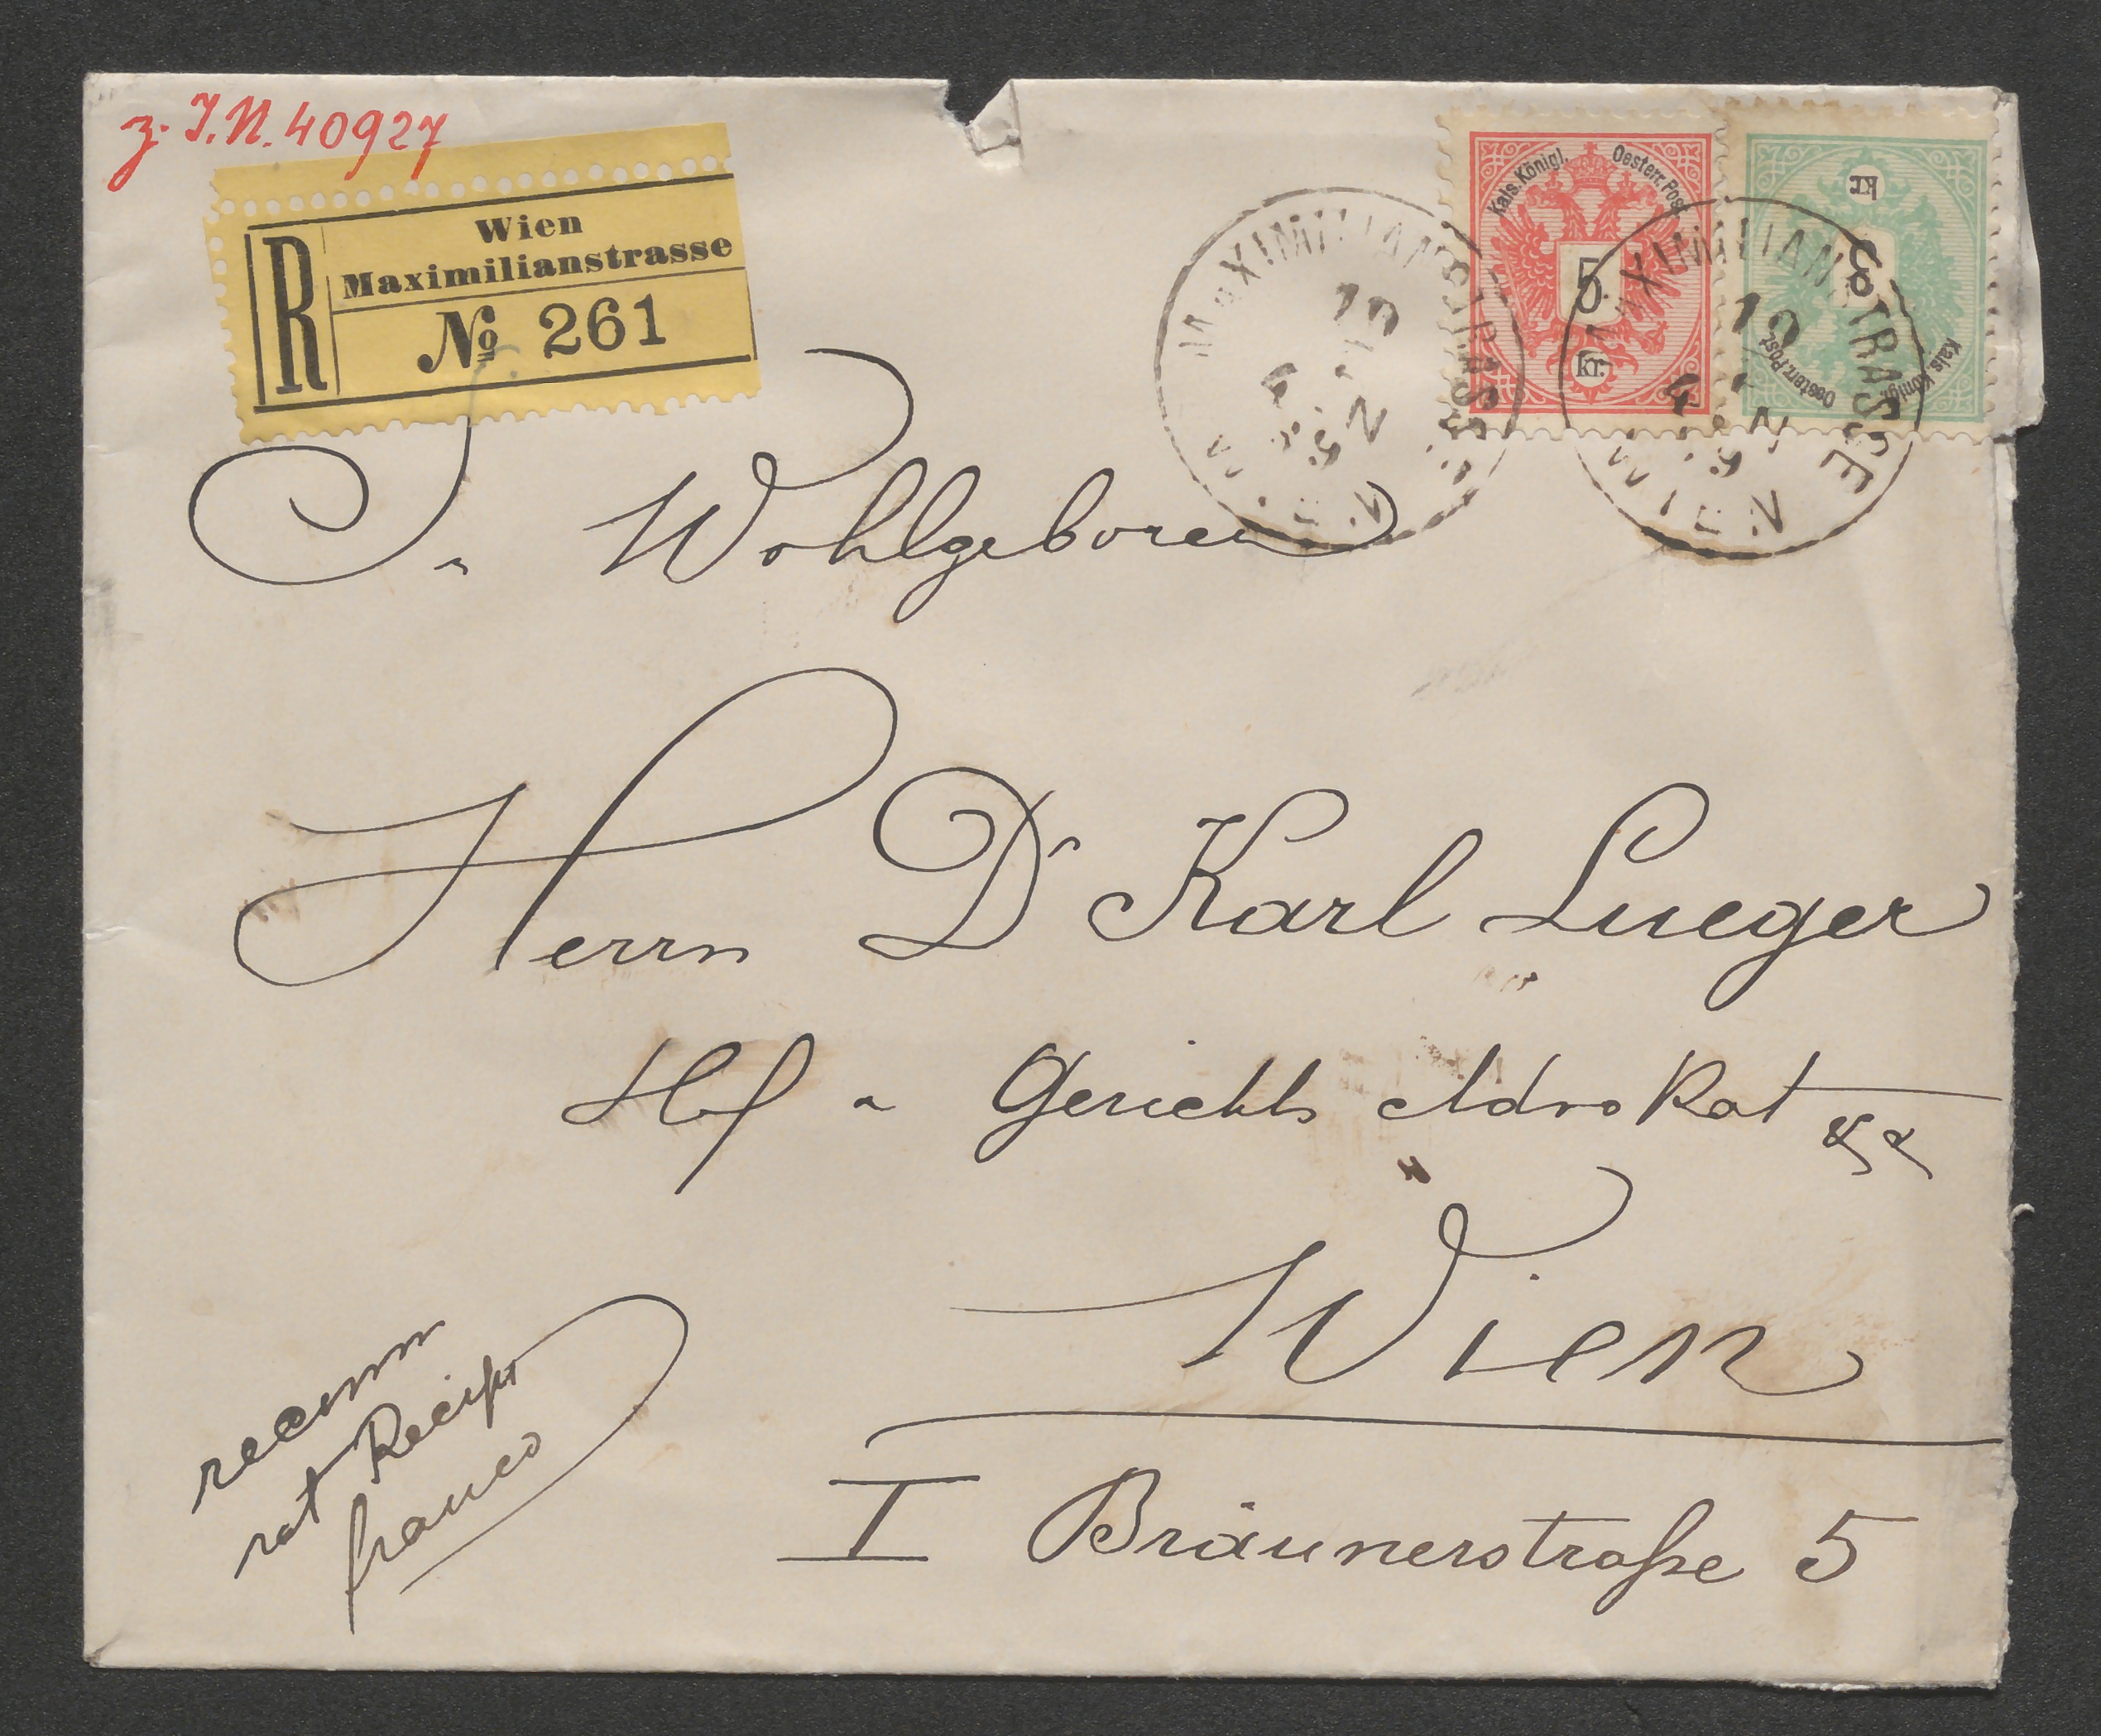 z. I.N. 40927
R
Wien
Maximilianstrasse
No 261
Kais. Königl. Oesterr. Post
5
kr.
Kais. Königl. Oesterr. Post
3
kr.
MAXIMILIANSTRASSE
WIEN
MAXIMILIANSTRASSE
WIEN
Wohlgeboren
Herrn Dr Karl Lueger
Hof u Gerichts Advokat
Wien
I Bräunerstraße 5
recomm
ret Receipt
franco